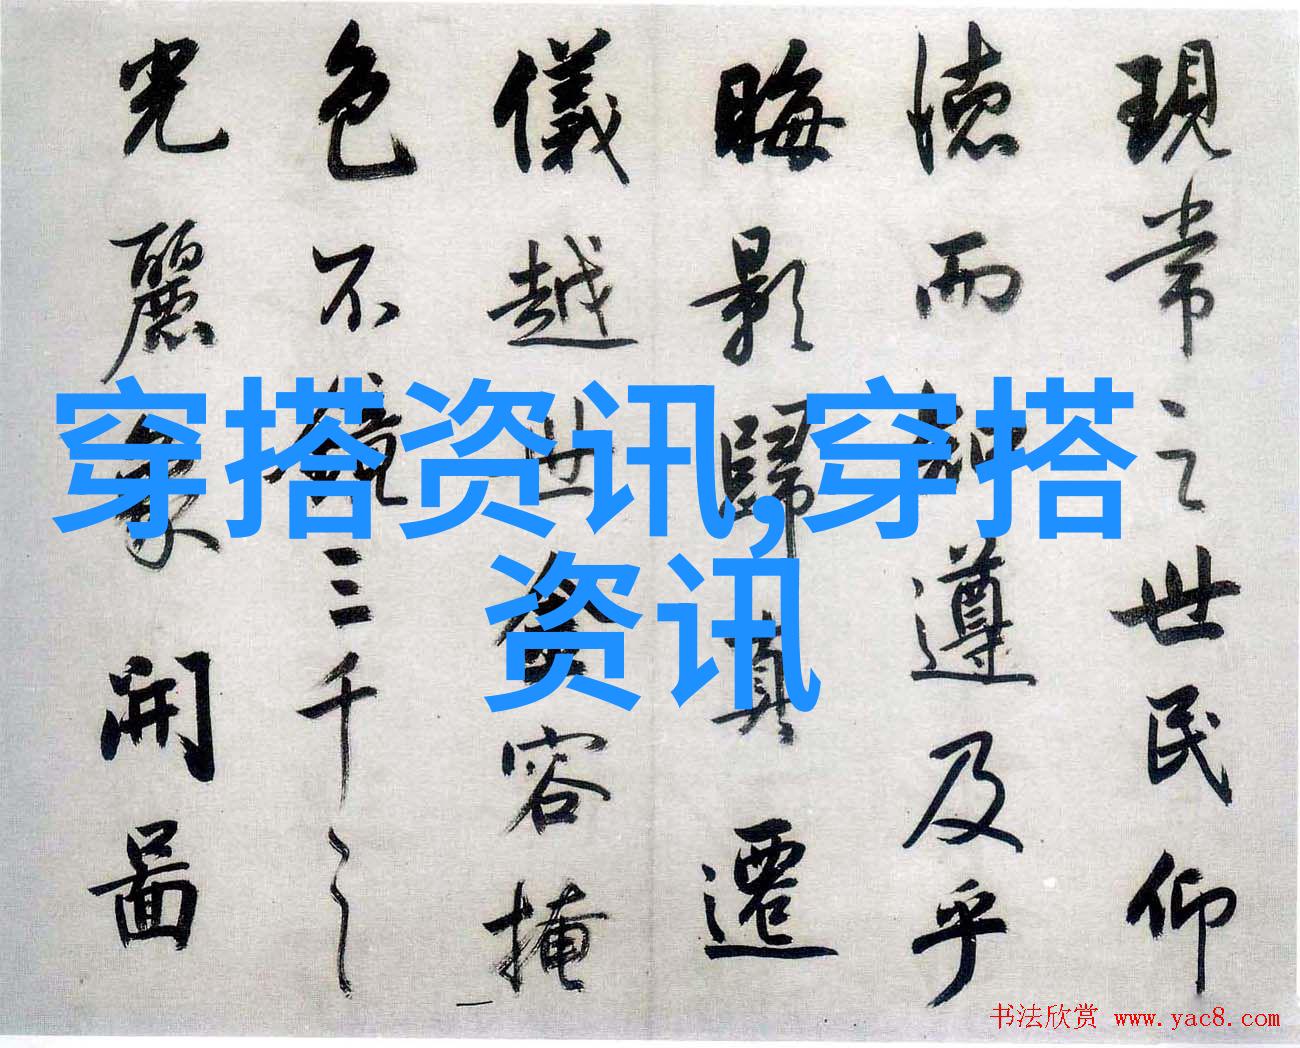 現常之世民仰
徳而知遵及乎
晦影歸真遷
儀越世金容掩
色不鏡三千之
光麗象開圖
穿搭资讯,穿搭
资讯
书法欣赏 www.yac8.com